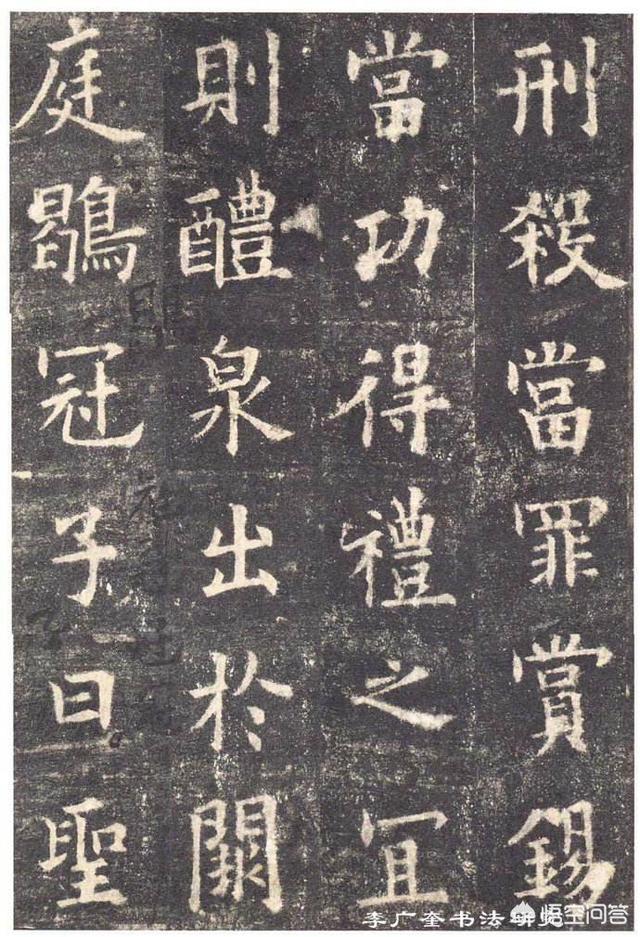 刑殺當罪賞錫
當功得禮之冝
則醴泉出於闕
庭鶡冠子曰聖
李广奎书法研究
悟空问答